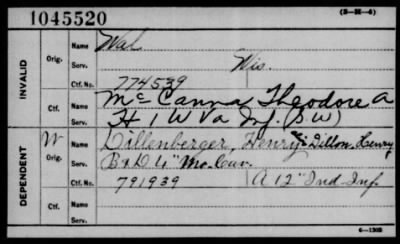 1045520 (3-86-4)
INVALID
Orig. Name Wal
Serv. Wis.
Ctf. No. 774539
Ctf. Name McCanna, Theodore A
Serv. H 1 W Va Inf. (S W)
DEPENDENT
W Orig. Name Dillenberger, Henry Dillon, Henry
Serv. B & D 4" Mo. Cav.
Ctf. No. 791939 A 12" Ind Inf.
Ctf. Name
Serv.